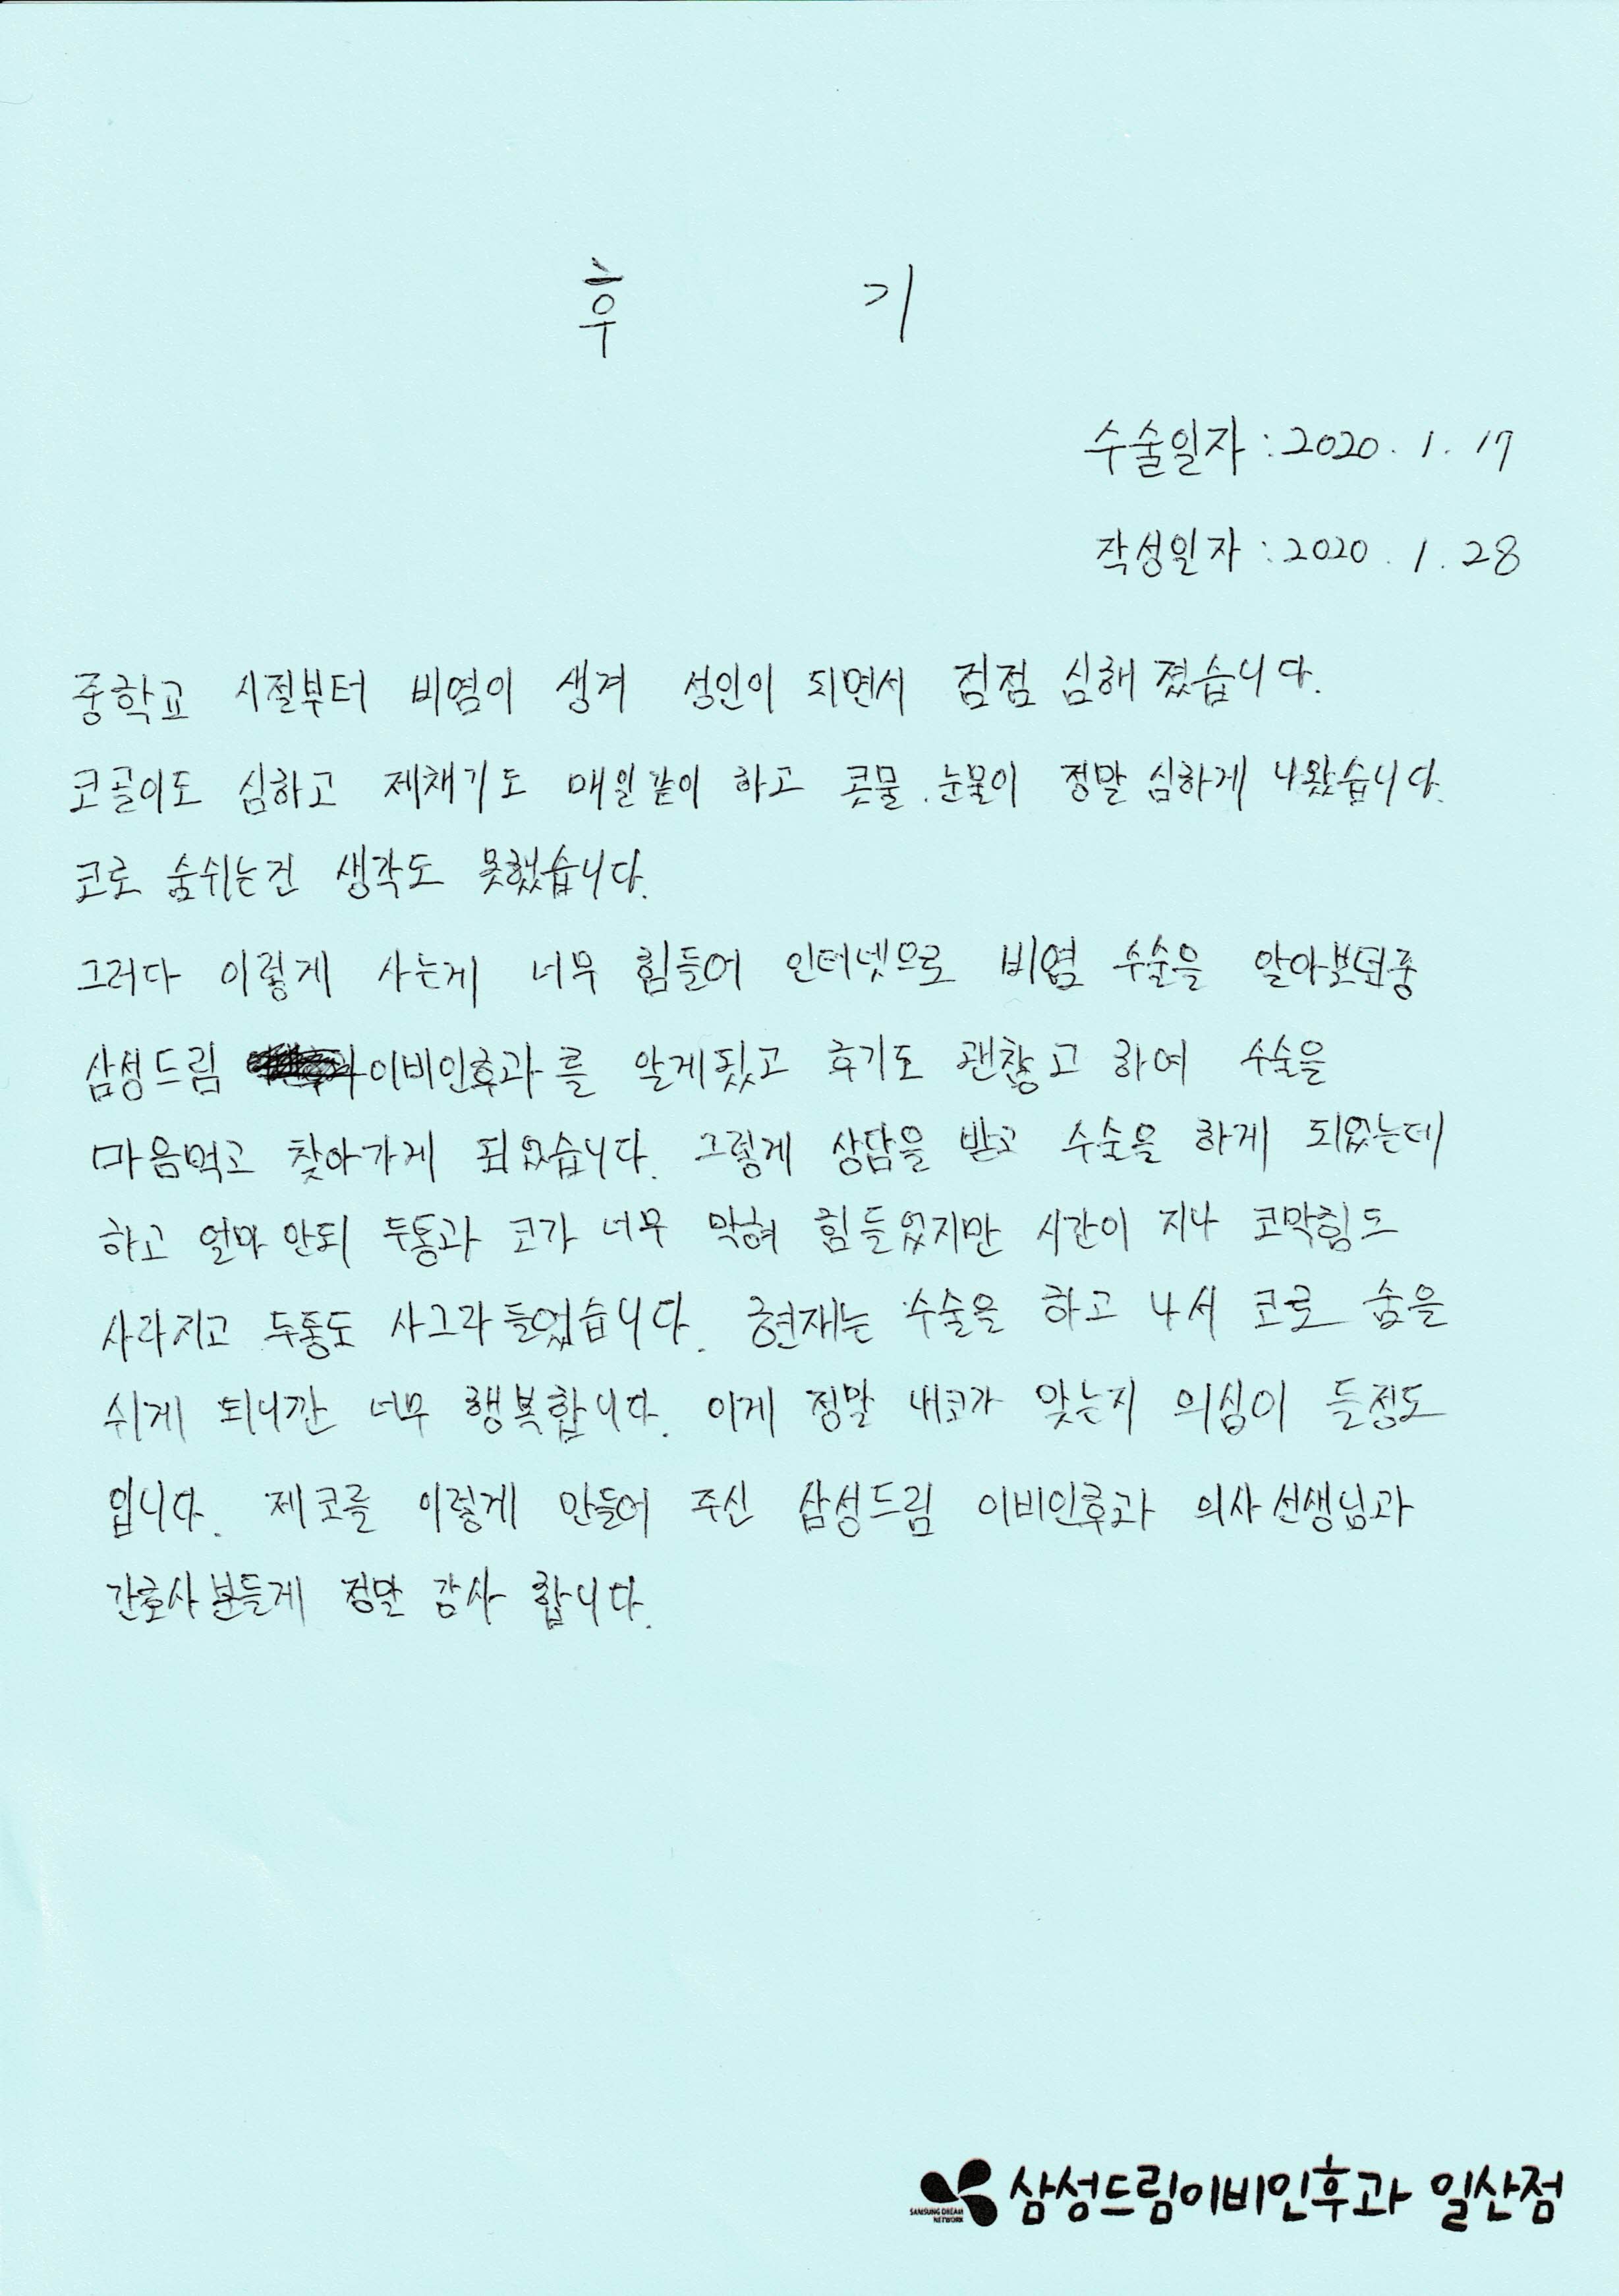 후 기
수술일자 : 2020. 1. 17
작성일자 : 2020. 1. 28
중학교 시절부터 비염이 생겨 성인이 되면서 점점 심해 졌습니다.
코골이도 심하고 제채기도 매일같이 하고 콧물.눈물이 정말 심하게 나왔습니다.
코로 숨쉬는건 생각도 못했습니다.
그러다 이렇게 사는게 너무 힘들어 인터넷으로 비염 수술을 알아보던중
삼성드림 이비인후과를 알게됬고 후기도 괜찮고 하여 수술을
마음먹고 찾아가게 되었습니다. 그렇게 상담을 받고 수술을 하게 되었는데
하고 얼마 안되 두통과 코가 너무 막혀 힘들었지만 시간이 지나 코막힘도
사라지고 두통도 사그라들었습니다. 현재는 수술을 하고 나서 코로 숨을
쉬게 되니깐 너무 행복합니다. 이게 정말 내코가 맞는지 의심이 들정도
입니다. 제코를 이렇게 만들어 주신 삼성드림 이비인후과 의사선생님과
간호사분들게 정말 감사 합니다.
SAMSUNG DREAM
NETWORK
삼성드림이비인후과 일산점